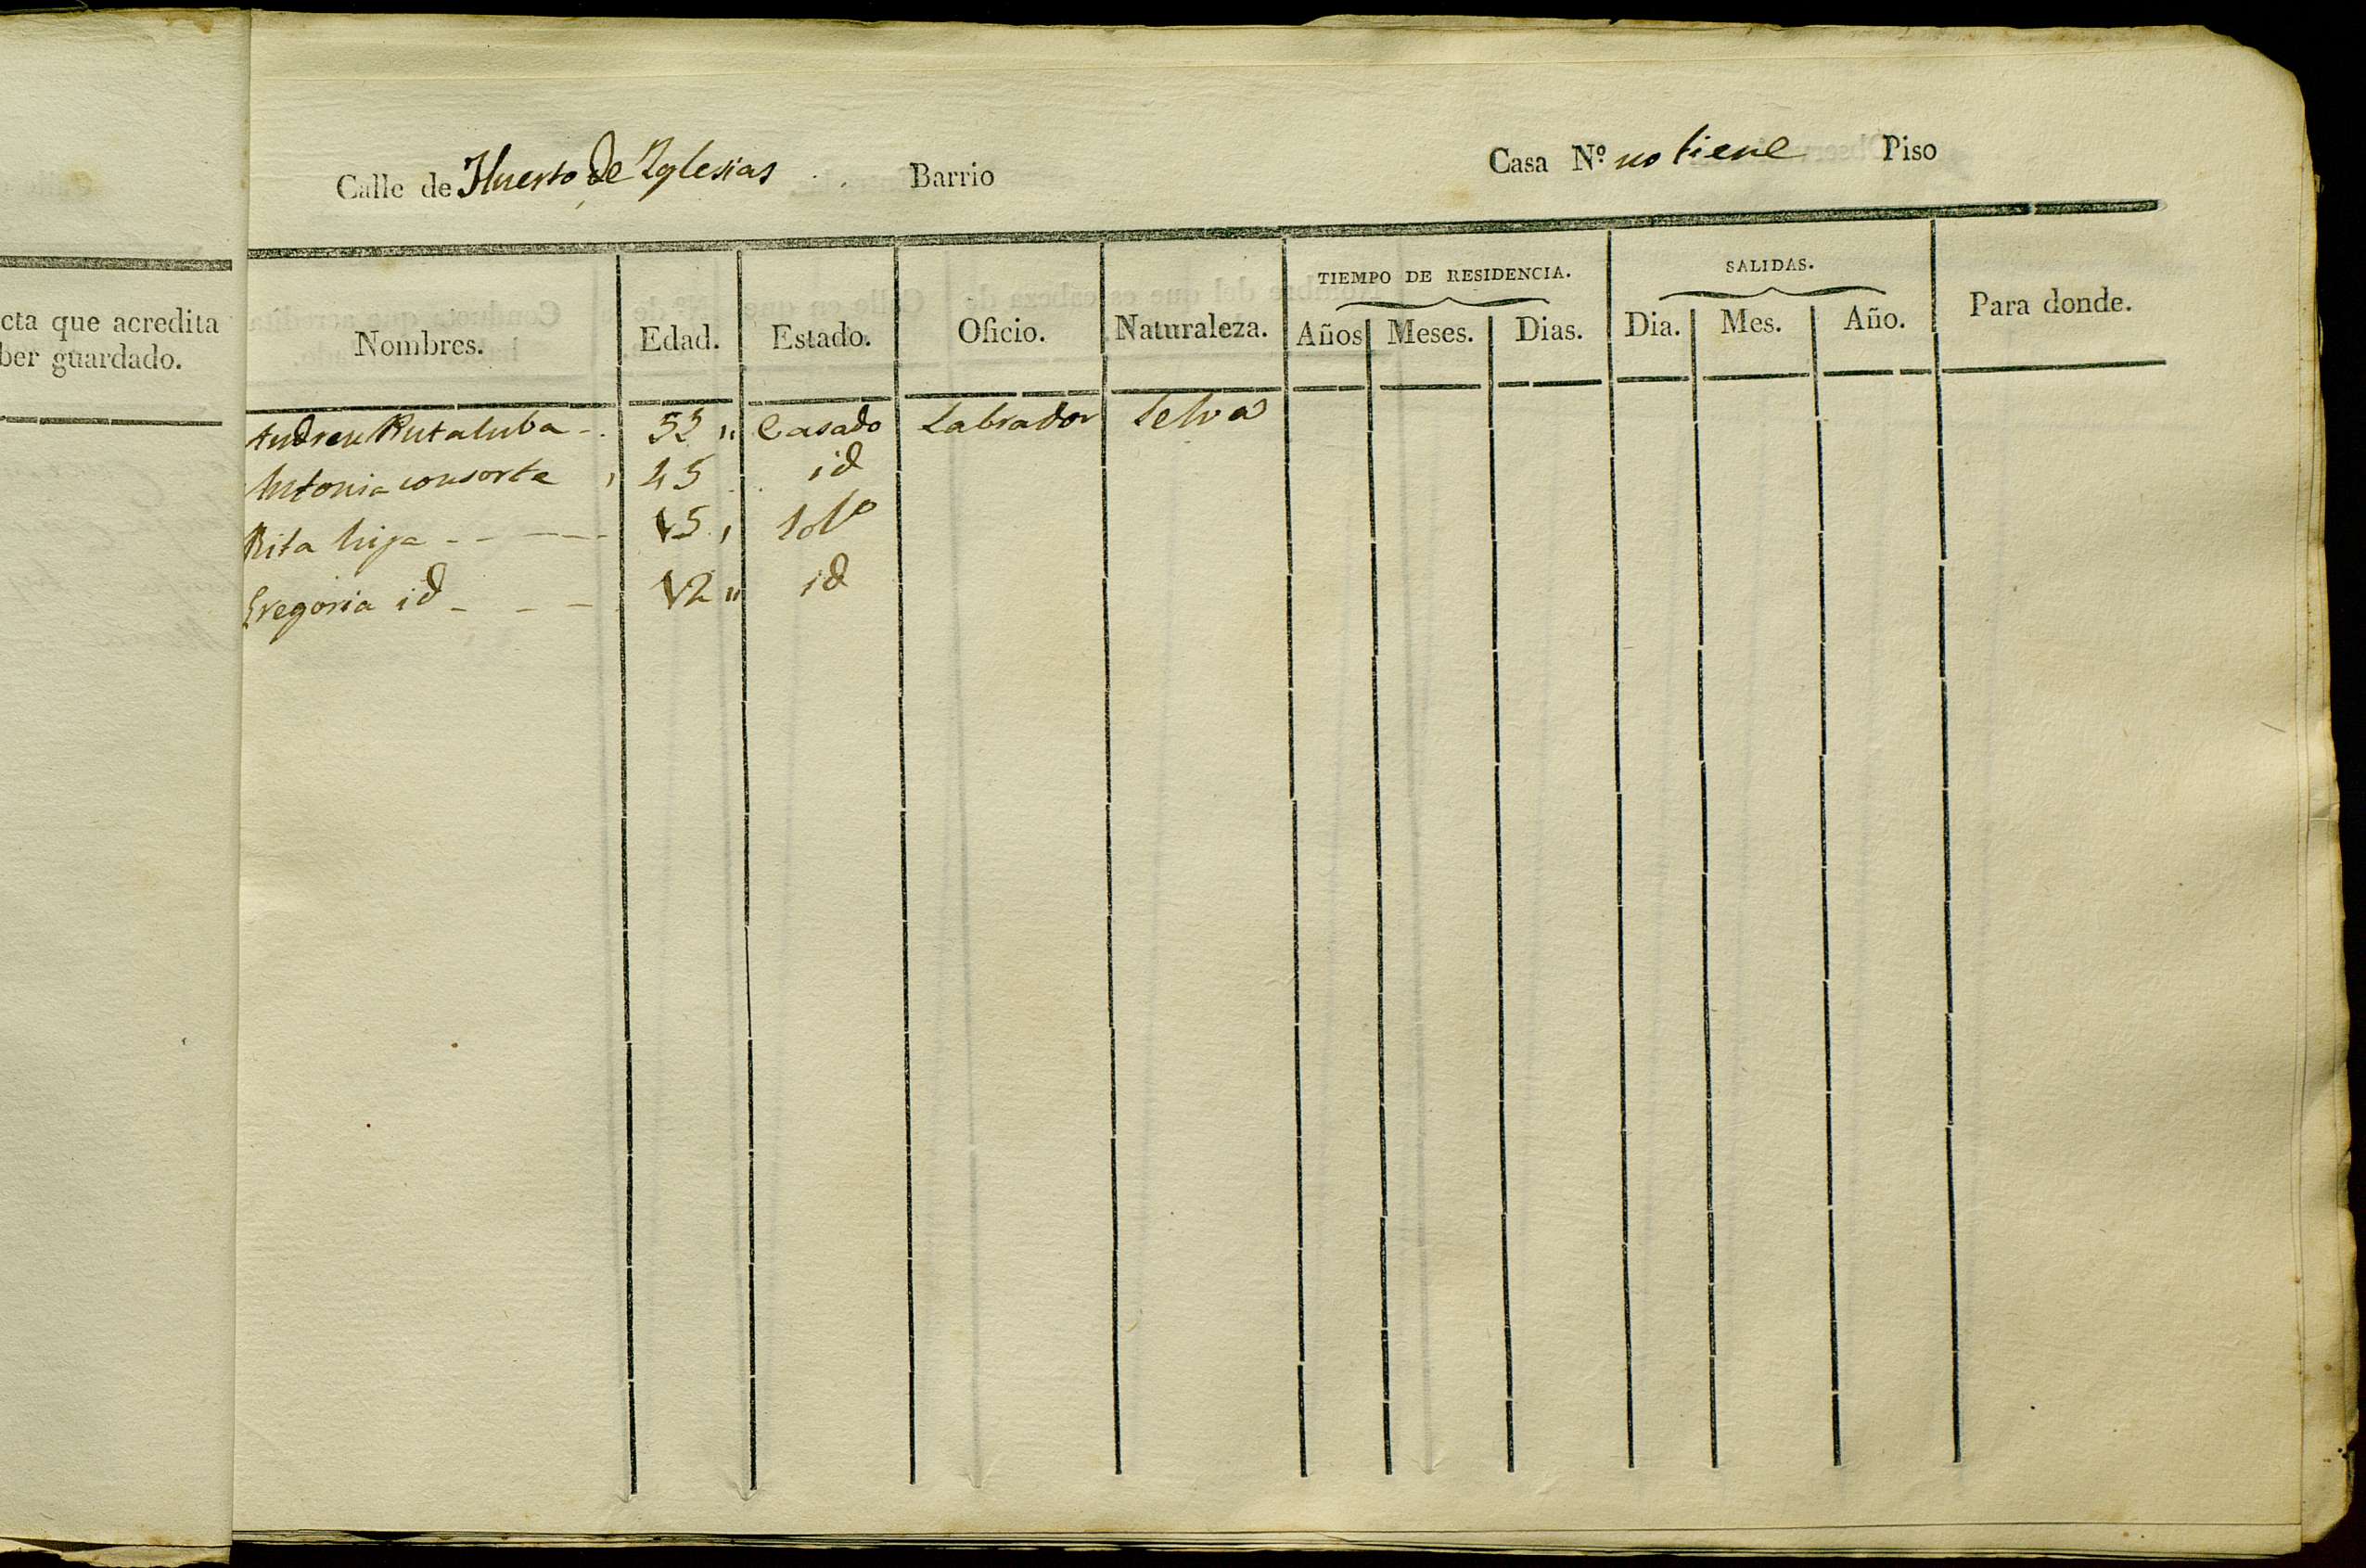 cta que acredita
ber guardado.
Calle de Huerto de Yglesias Barrio Casa N.º no tiene Piso
Nombres. Edad. Estado. Oficio. Naturaleza. TIEMPO DE RESIDENCIA. Años Meses. Dias. SALIDAS. Dia. Mes. Año. Para donde.
Andreu 53 Casado Labrador Selva
Antonia consorte 45 id
Rita hija 15 Solº
Gregoria id 12 id